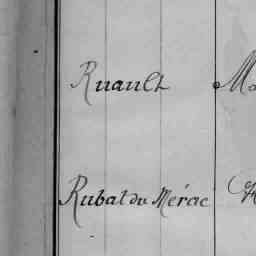 Ruault
Rubat du Mérac